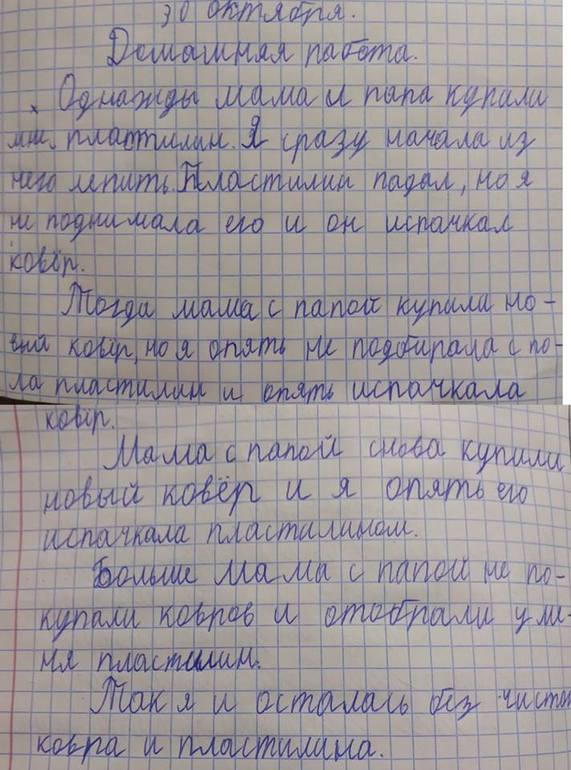 30 октября.
Домашняя работа.
Однажды мама и папа купили
мне пластилин. Я сразу начала из
него лепить. Пластилин падал, но я
не поднимала его и он испачкал
ковёр.
Тогда мама с папой купили но-
вый ковёр, но я опять не подбирала с по-
ла пластилин и опять испачкала
ковёр.
Мама с папой снова купили
новый ковёр и я опять его
испачкала пластилином.
Больше мама с папой не по-
купали ковров и отобрали у ме-
ня пластилин.
Так я и осталась без чисто
ковра и пластилина.